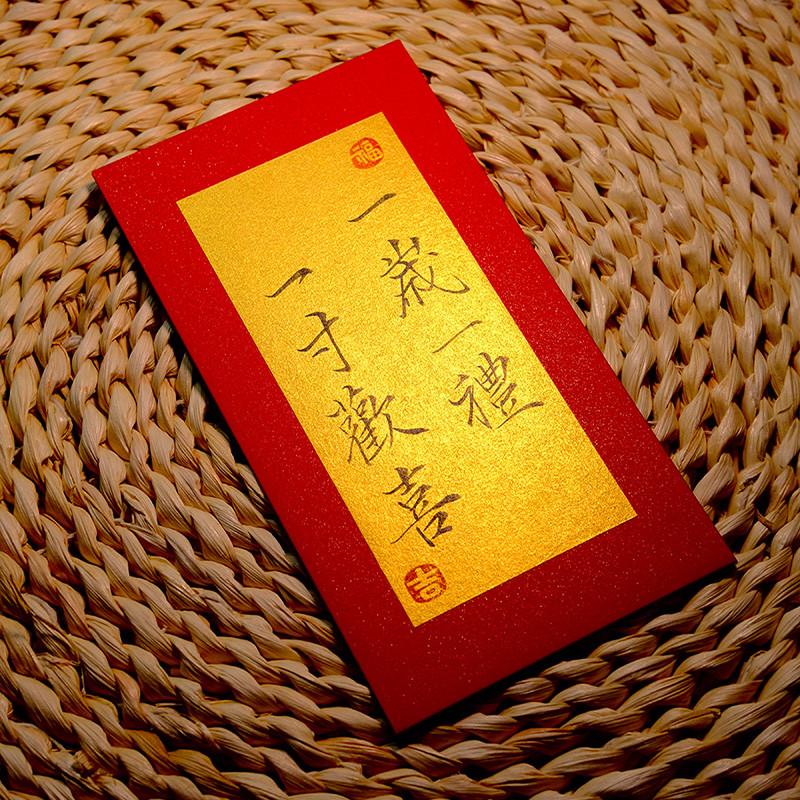 福
一歲一禮
一寸歡喜
吉